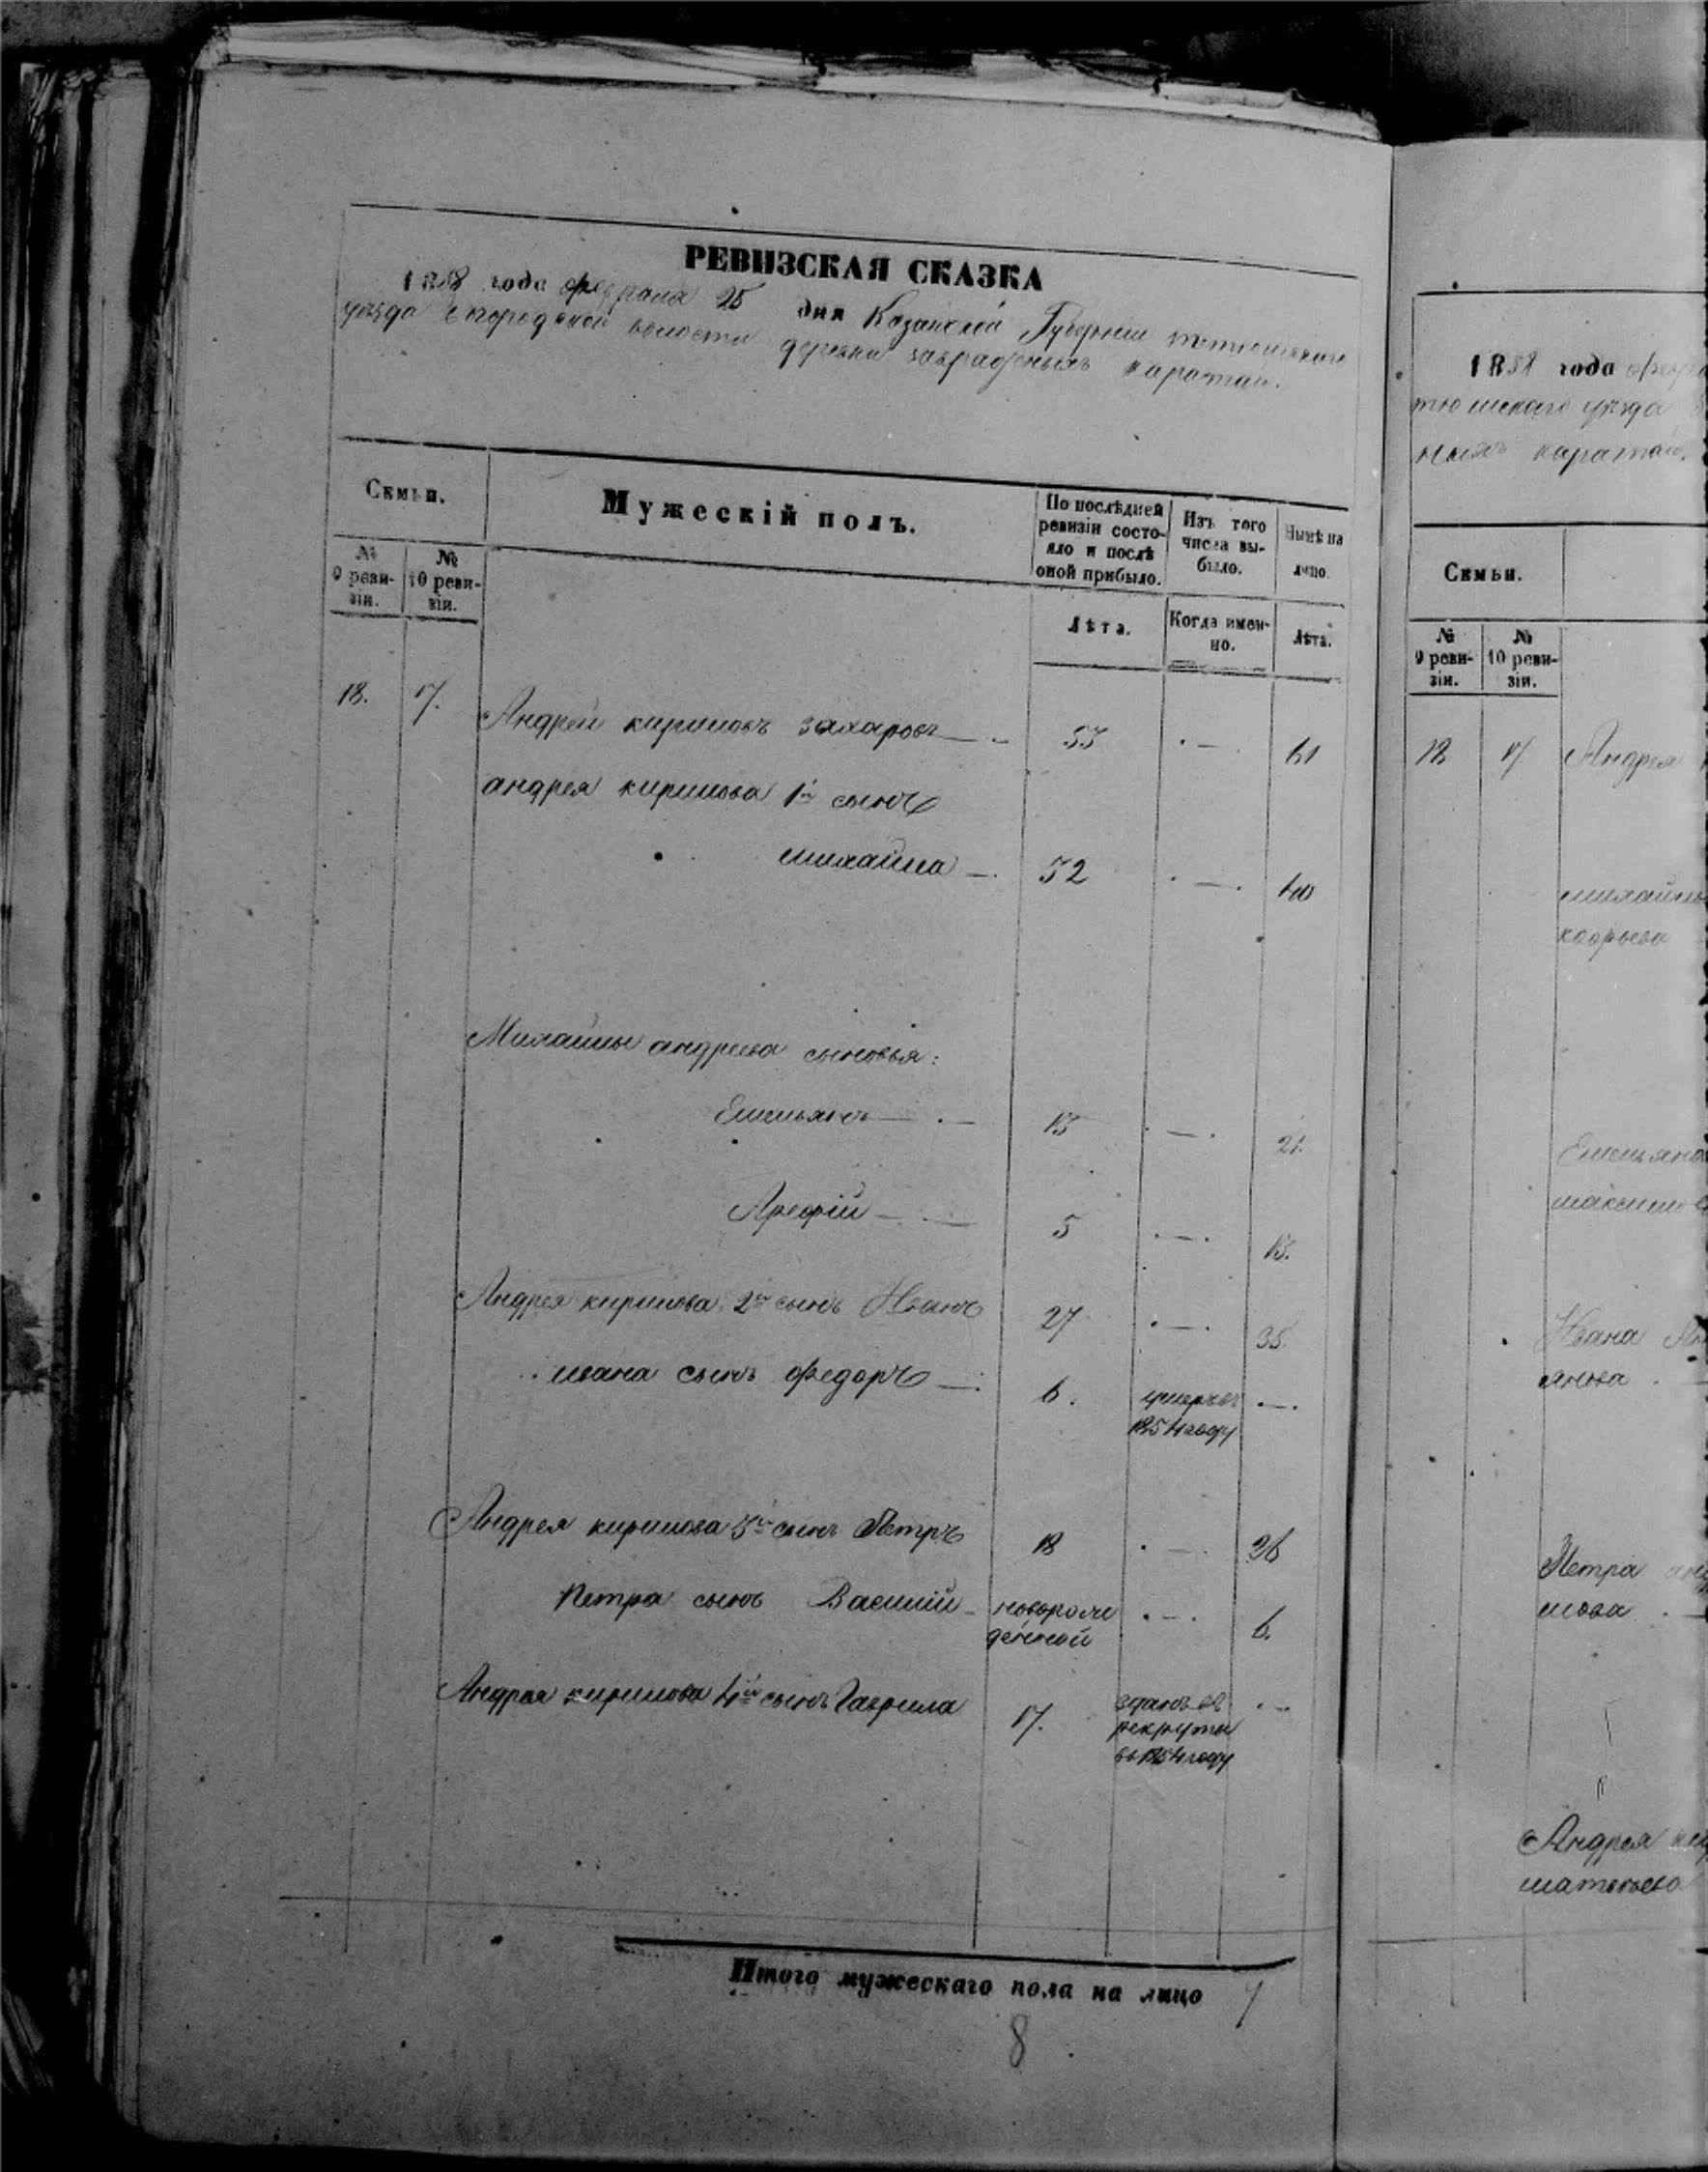 РЕВИЗСКАЯ СКАЗКА
1858 года февраля 25 дня Казанской Губернии тетюшскаго
уезда городской волости деревни заовражных каратай.
Семьи.
Мужескій полъ.
По последней ревизіи состояло и после оной прибыло.
Изъ того числа выбыло.
Ныне на лицо.
№ 9 ревизіи.
№ 10 ревизіи.
Лѣта.
Когда именно.
Лѣта.
18. 17. Андрей кириловъ захаровъ 53 61
андрея кирилова 1й сынъ
михайла 32 40
Михайлы андреева сыновья:
Емельянъ 13 21.
Арефій 5 13.
Андрея кирилова 2й сынъ Иванъ 27 35.
ивана сынъ федоръ 6. умеръ въ 1854 году
Андрея кирилова 3й сынъ Петръ 18 26
Петра сынъ Василий новорожденной 6.
Андрея кирилова 4й сынъ Гаврила 17. зданъ въ рекруты въ 1854 году
Итого мужескаго пола на лицо 7
8
1858 года
тюшскаго уезда
ныхъ каратай.
Семьи.
№ 9 ревизіи.
№ 10 ревизіи.
18 17 Андрея
михайлы
Емельяна
максимо
Ивана
Петра
Андрея
матвеева